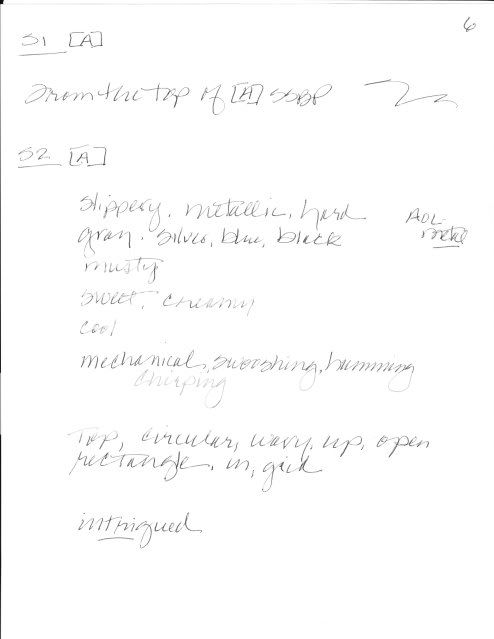 6
S1 [A]
From the top of [A] SSBP
S2 [A]
slippery, metallic, hard
gray, silver, blue, black
AOL
metal
musty
sweet, creamy
cool
mechanical, swooshing, humming
chirping
Top, circular, wavy, up, open
rectangle, in, grid
intrigued